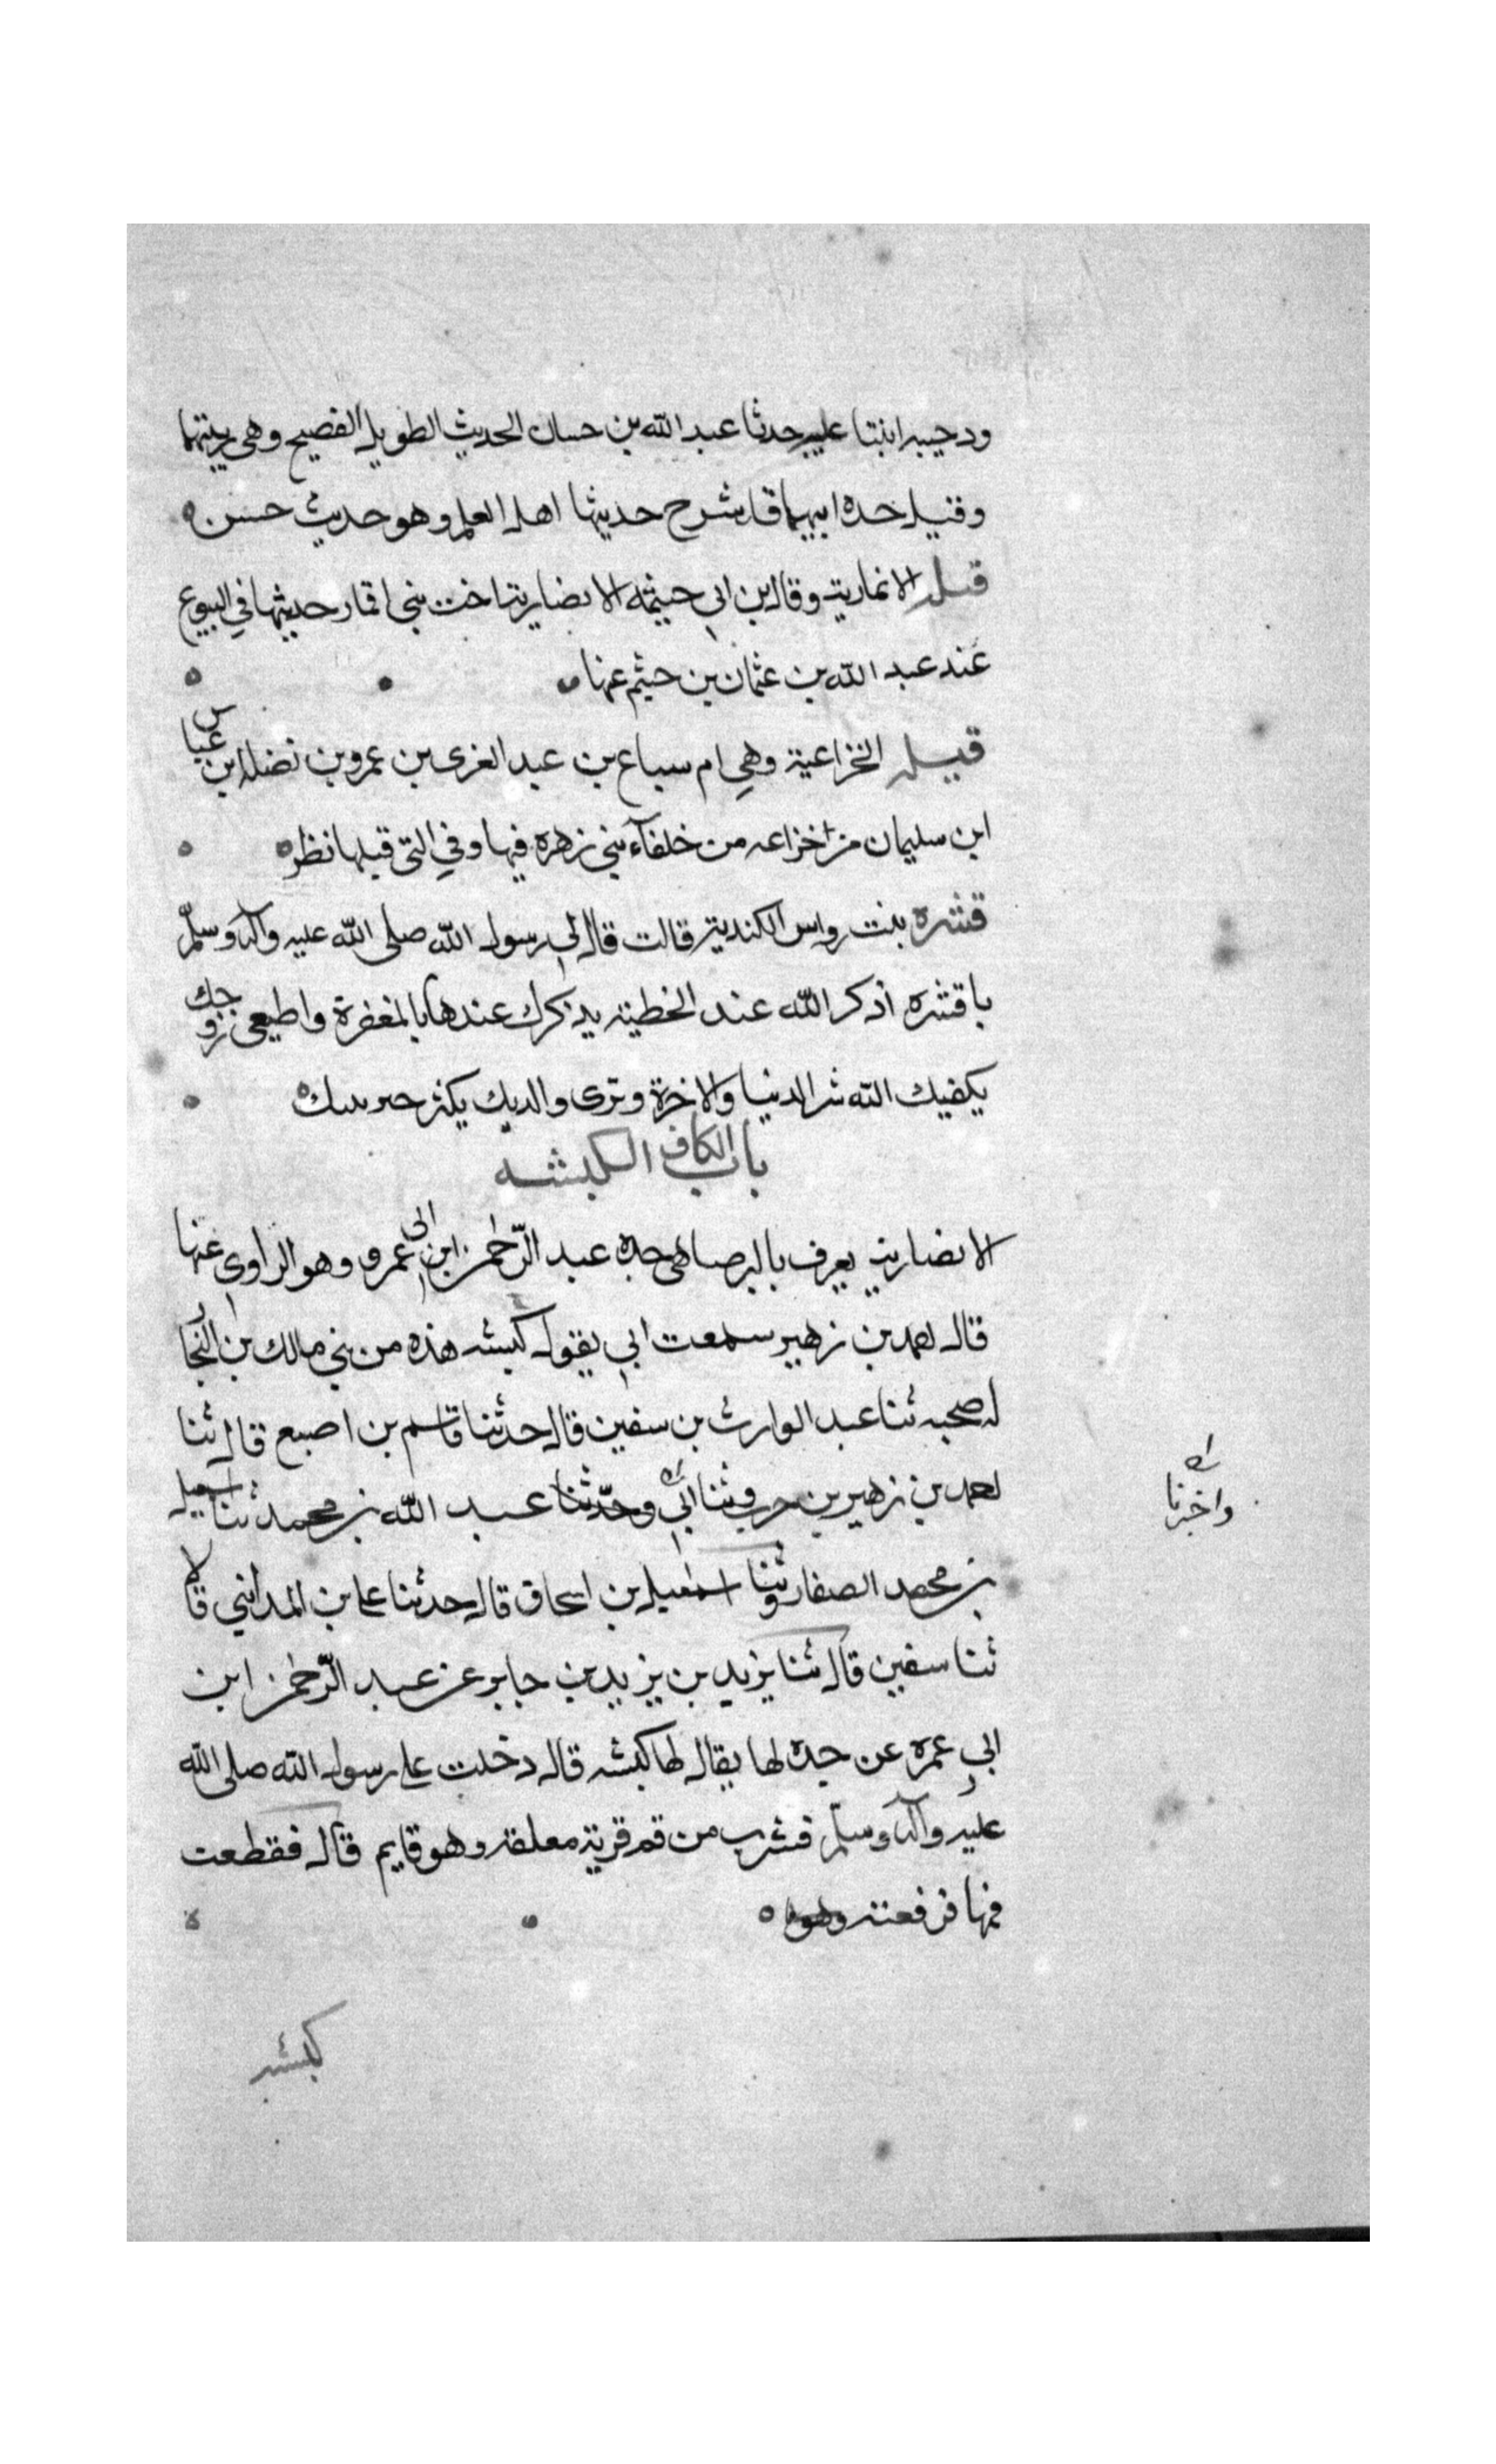 ودحيبه ابنتا عليبه حدثنا عبد الله بن حسان الحديث الطويل الفصيح وهي ربيتهما
وقيله جده ابيهما قد شرح حديثها اهل العلم وهو حديث حسن
قيله الانماريه وقال ابن ابي خيثمه الانصاريه اخت بني انمار حديثها في البيوع
عند عبد الله بن عثمان بن خيثم عنها
قيله الخزاعية وهي ام سباع بن عبد العزى بن عمرو بن نضله ابن عباس
ابن سليمان من خزاعه من حلفآء بني زهره فيها وفي التي قبلها نظر
قشره بنت رواس الكندية قالت قال لي رسول الله صلى الله عليه وآله وسلم
يا قشره أذكر الله عند الخطيئه يذكرك عندها بالمغفرة واطيعي زوجك
يكفيك الله شر الدنيا والاخرة وبرى والديك يكثر خير بيتك
باب الكاف الكبشه
الانصارية يعرف بالبرصا هى جده عبد الرحمن ابن ابي عمرو وهو الراوى عنها
قال احمد بن زهير سمعت ابي يقول كبشه هذه من بني مالك بن النجار
له صحبه ثنا عبد الوارث بن سفين قال حدثنا قاسم بن اصبع قال ثنا
احمد بن زهير بن حرب وثنا ابي وحدثنا عبد الله بن محمد ثنا اسمعيل
بن محمد الصفار وثنا اسمعيل بن اسحاق قال حدثنا علي بن المدايني قالا
ثنا سفين قال ثنا يزيد بن يزيد بن جابر عن عبد الرحمن ابن
ابي عمره عن جده لها يقال لها كبشه قال دخلت على رسول الله صلى الله
عليه وآله وسلم فشرب من فم قربة معلقه وهو قايم قال فقطعت
فمها فرفعته
واخبرنا
كبشه